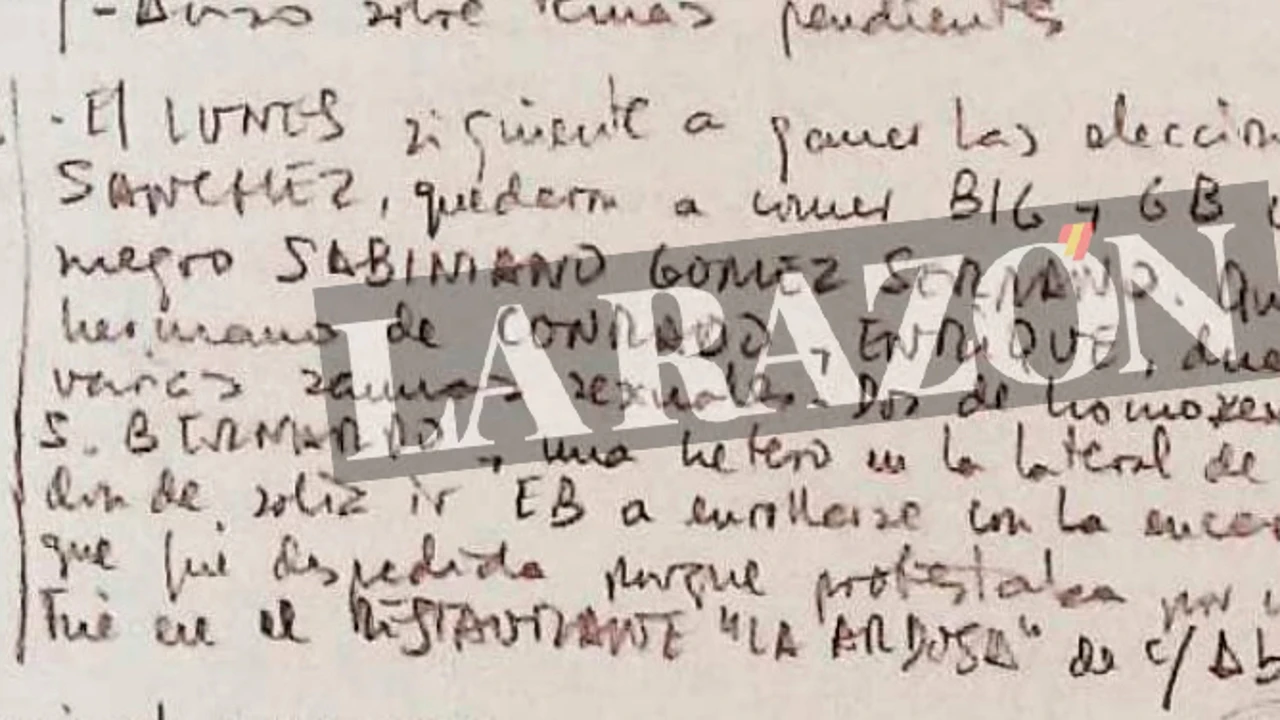 - Aviso sobre temas pendientes
- El LUNES siguiente a ganar las eleccion
SANCHEZ, quedaron a comer BIG y GB
negro SABINIANO GOMEZ SERRANO. Qu
hermano de CONRADO y ENRIQUE, due
varias saunas sexuales. Dos de homosex
S. BERNARDO y una hetero en la lateral de
donde solia ir EB a enrollarse con la encar
que fue despedida porque protestaba por
Fue en el RESTAURANTE "LA ARDOSA" de c/
LA RAZÓN